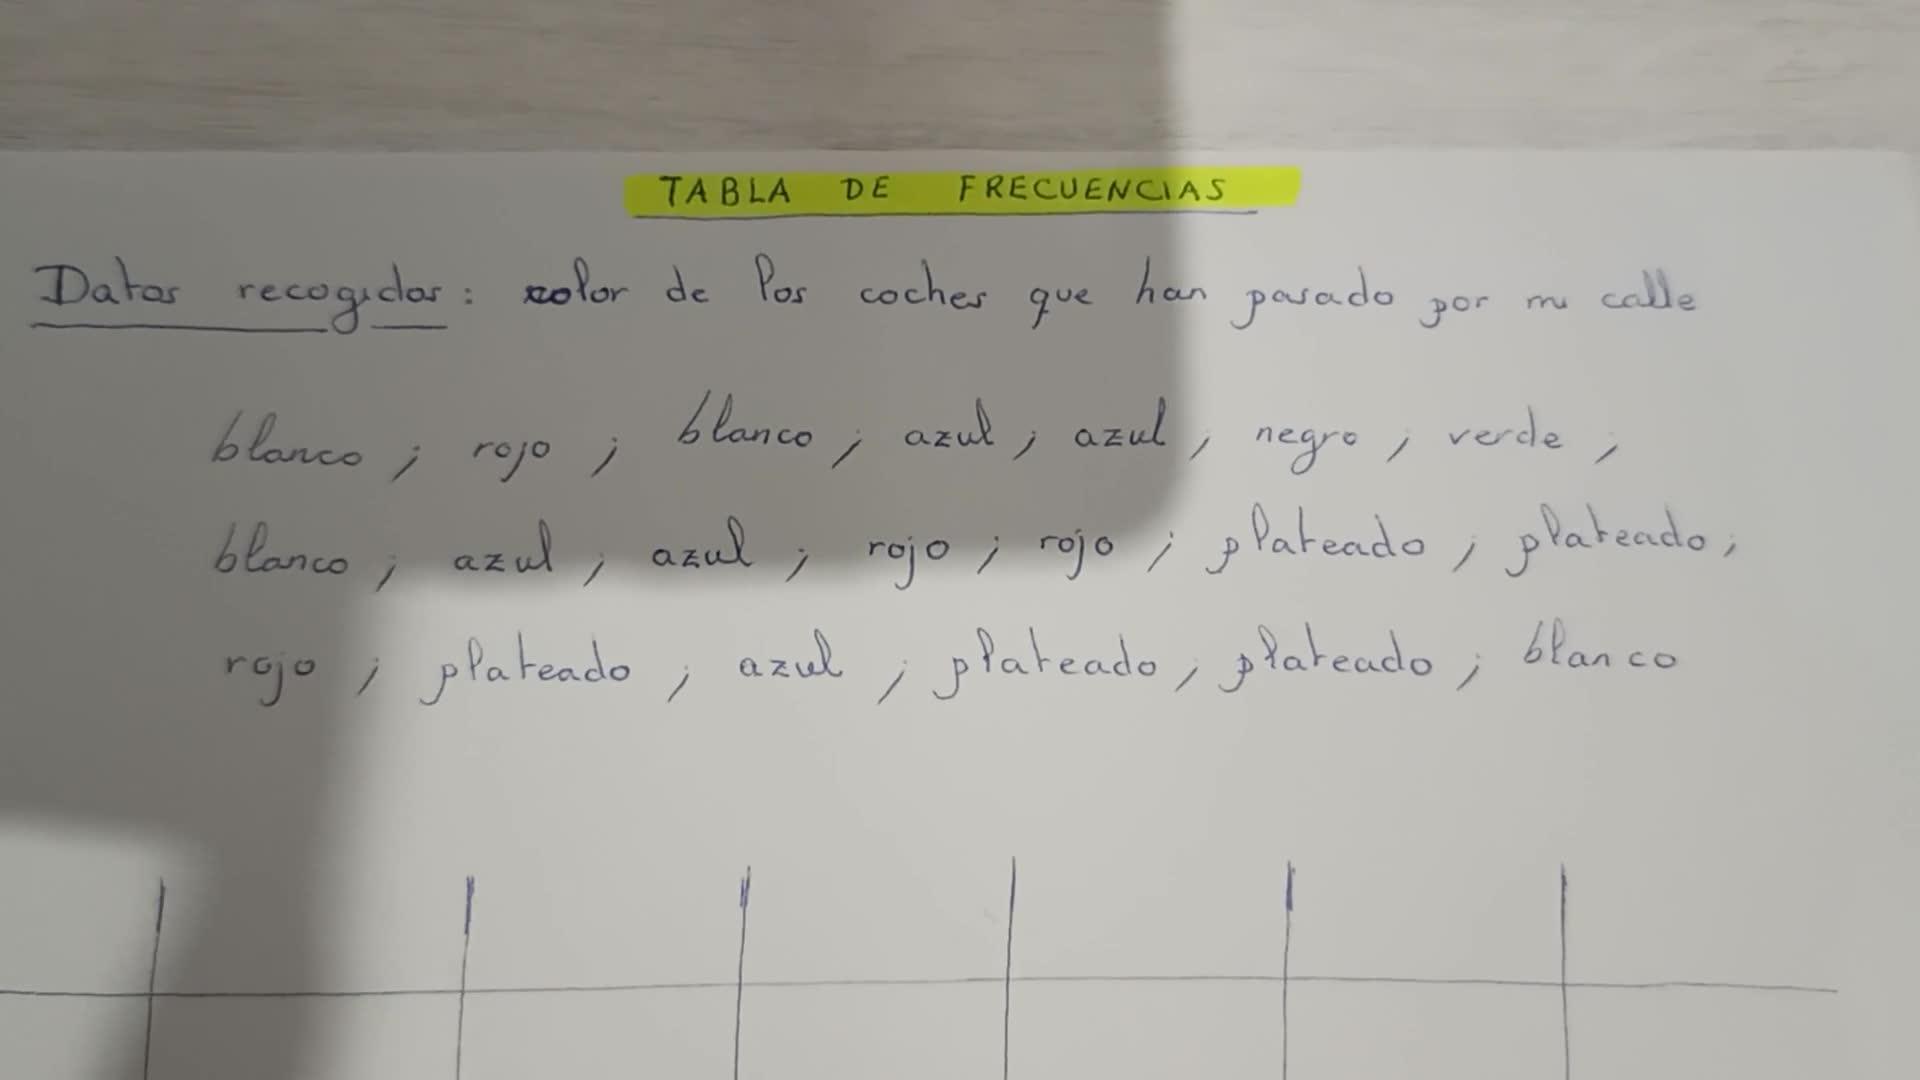 TABLA DE FRECUENCIAS
Datos recogidos: color de los coches que han pasado por mi calle
blanco ; rojo ; blanco ; azul ; azul ; negro ; verde ;
blanco ; azul ; azul ; rojo ; rojo ; plateado ; plateado ;
rojo ; plateado ; azul ; plateado ; plateado ; blanco